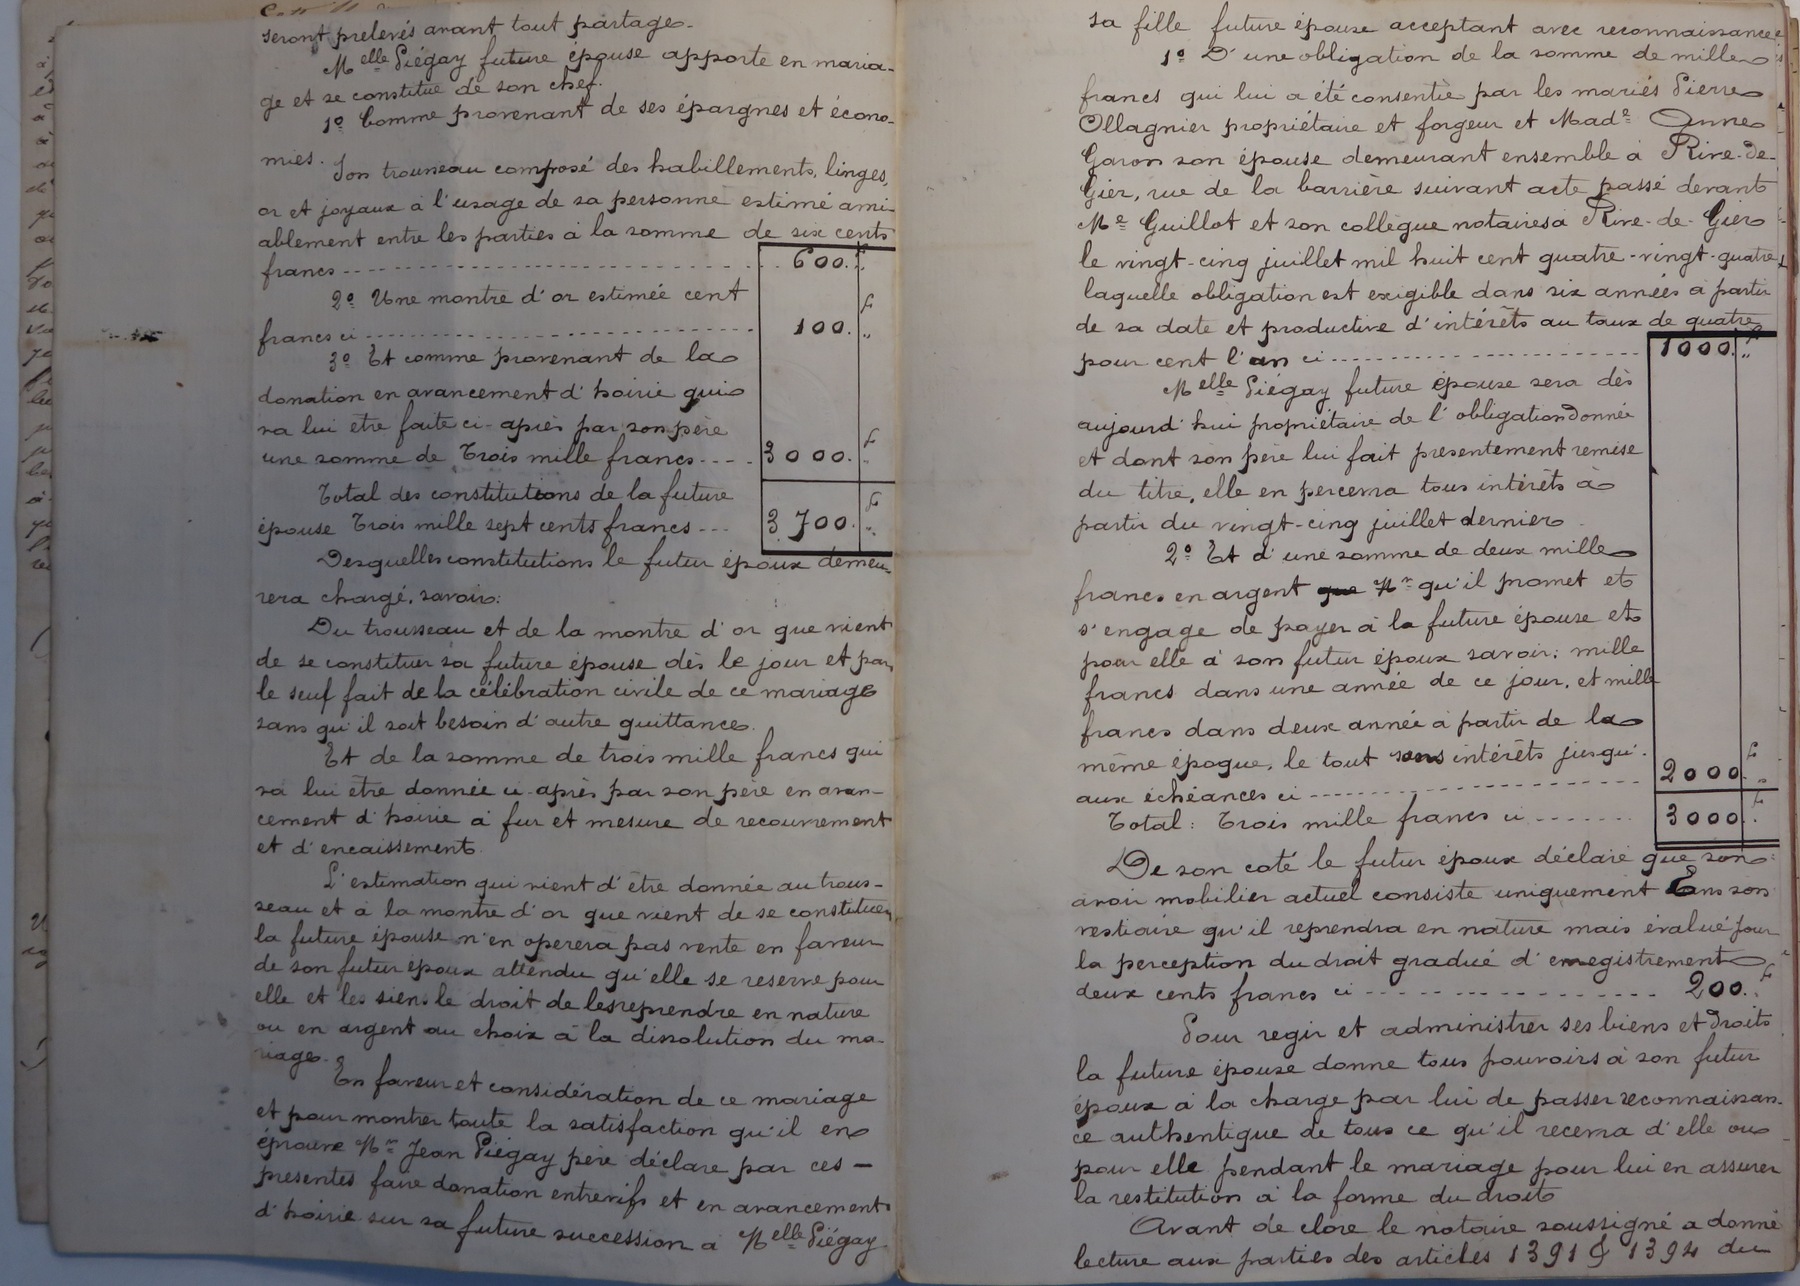 seront prelevés avant tout partage.
Melle Piégay future épouse apporte en maria-
ge et se constitue de son chef.
1º Comme provenant de ses épargnes et écono-
mies.
Son trousseau composé des habillements, linges,
or et joyaux à l'usage de sa personne estimé ami-
ablement entre les parties à la somme de six cents
francs 600. F
2º Une montre d'or estimée cent
francs ci 100. F
3º Et comme provenant de la
donation en avancement d'hoirie qui
va lui être faite ci-après par son père
une somme de Trois mille francs 3000. F
Total des constitutions de la future
épouse Trois mille sept cents francs 3700. F
Desquelles constitutions le futur époux demeu-
rera chargé, savoir:
Du trousseau et de la montre d'or que vient
de se constituer sa future épouse dès le jour et par
le seul fait de la célébration civile de ce mariage
sans qu'il soit besoin d'autre quittance.
Et de la somme de trois mille francs qui
va lui être donnée ci-après par son père en avan-
cement d'hoirie à fur et mesure de recouvrement
et d'encaissement.
L'estimation qui vient d'être donnée au trous-
seau et à la montre d'or que vient de se constituer
la future épouse n'en operera pas vente en faveur
de son futur époux attendu qu'elle se reserve pour
elle et les siens le droit de les reprendre en nature
ou en argent au choix à la dissolution du ma-
riage.
En faveur et considération de ce mariage
et pour montrer toute la satisfaction qu'il en
éprouve Mr Jean Piégay père déclare par ces -
presentes faire donation entrevifs et en avancement
d'hoirie sur sa future succession à Melle Piégay
sa fille future épouse acceptant avec reconnaissance
1º D'une obligation de la somme de mille
francs qui lui a été consentie par les mariés Pierre
Ollagnier propriétaire et forgeur et Made Anne
Garon son épouse demeurant ensemble à Rive-de-
Gier, rue de la barrière suivant acte passé devant
Me Guillot et son collègue notaires à Rive-de-Gier
le vingt-cinq juillet mil huit cent quatre-vingt-quatre
laquelle obligation est exigible dans six années à partir
de sa date et productive d'intérêts au taux de quatre
pour cent l'an ci 1000. F
Melle Piégay future épouse sera dès
aujourd'hui propriétaire de l'obligation donnée
et dont son père lui fait presentement remise
du titre, elle en percevra tous intérêts à
partir du vingt-cinq juillet dernier.
2º Et d'une somme de deux mille
francs en argent que Mr qu'il promet et
s'engage de payer à la future épouse et
pour elle à son futur époux savoir: mille
francs dans une année de ce jour, et mille
francs dans deux année à partir de la
même époque, le tout sans intérêts jusqu'
aux échéances ci 2000 F
Total: Trois mille francs ci 3000 F
De son coté le futur époux déclare que son
avoir mobilier actuel consiste uniquement Ens son
vestiaire qu'il reprendra en nature mais évalué pour
la perception du droit gradué d'enregistrement
deux cents francs ci 200. F
Pour regir et administrer ses biens et droits
la future épouse donne tous pouvoirs à son futur
époux à la charge par lui de passer reconnaissan-
ce authentique de tous ce qu'il recevra d'elle ou
pour elle pendant le mariage pour lui en assurer
la restitution à la forme du droit
Avant de clore le notaire soussigné a donné
lecture aux parties des articles 1391 & 1394 du